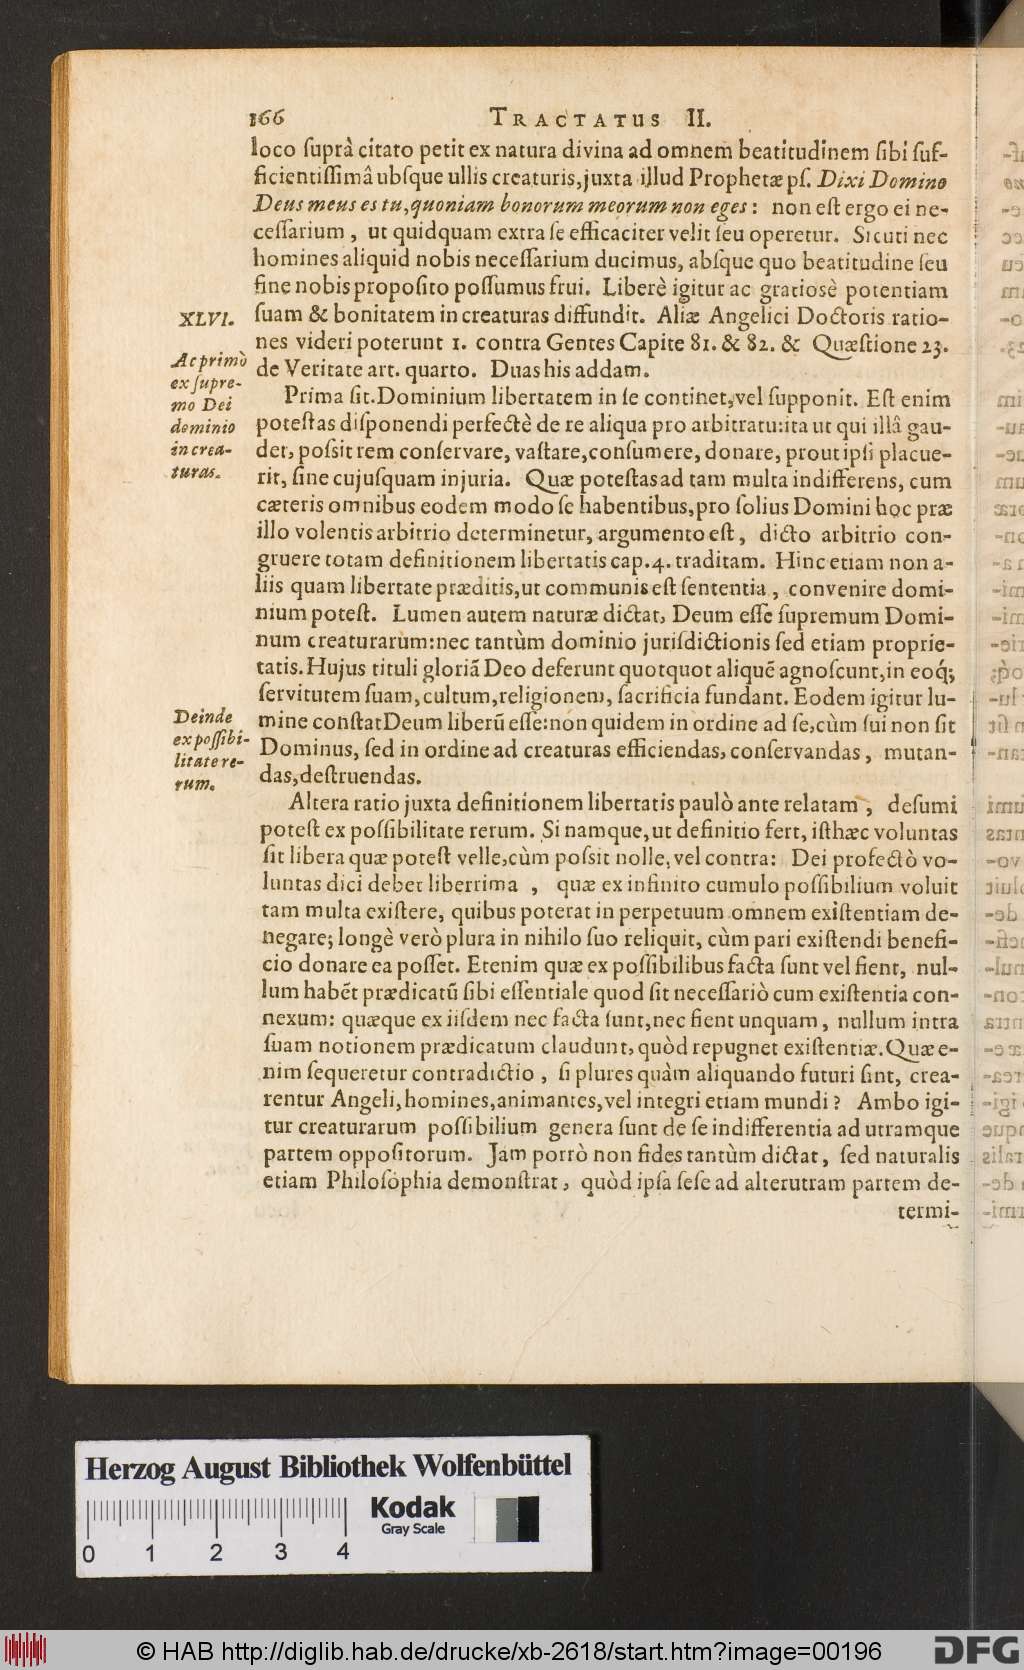 166
TRACTATUS II.
loco ſuprà citato petit ex natura divina ad omnem beatitudinem ſibi ſuf-
ficientiſſimâ ubſque ullis creaturis, juxta illud Prophetæ pſ. Dixi Domino
Deus meus es tu, quoniam bonorum meorum non eges: non eſt ergo ei ne-
ceſſarium, ut quidquam extra ſe efficaciter velit ſeu operetur. Sicuti nec
homines aliquid nobis neceſſarium ducimus, abſque quo beatitudine ſeu
fine nobis propoſito poſſumus frui. Liberè igitur ac gratiosè potentiam
XLVI.
ſuam & bonitatem in creaturas diffundit. Aliæ Angelici Doctoris ratio-
nes videri poterunt 1. contra Gentes Capite 81. & 82. & Quæſtione 23.
de Veritate art. quarto. Duas his addam.
Ac primò
ex ſupre-
mo Dei
dominio
in crea-
turas.
Prima ſit. Dominium libertatem in ſe continet, vel ſupponit. Eſt enim
poteſtas diſponendi perfectè de re aliqua pro arbitratu: ita ut qui illâ gau-
det, poſsit rem conſervare, vaſtare, conſumere, donare, prout ipſi placue-
rit, ſine cujuſquam injuria. Quæ poteſtas ad tam multa indifferens, cum
cæteris omnibus eodem modo ſe habentibus, pro ſolius Domini hoc præ
illo volentis arbitrio determinetur, argumento eſt, dicto arbitrio con-
gruere totam definitionem libertatis cap. 4. traditam. Hinc etiam non a-
liis quam libertate præditis, ut communis eſt ſententia, convenire domi-
nium poteſt. Lumen autem naturæ dictat, Deum eſſe ſupremum Domi-
num creaturarum: nec tantùm dominio juriſdictionis ſed etiam proprie-
tatis. Hujus tituli gloriã Deo deferunt quotquot aliquẽ agnoſcunt, in eoq́;
ſervitutem ſuam, cultum, religionem, ſacrificia fundant. Eodem igitur lu-
Deinde
ex poſſibi-
litate re-
rum.
mine conſtat Deum liberũ eſſe: non quidem in ordine ad ſe, cùm ſui non ſit
Dominus, ſed in ordine ad creaturas efficiendas, conſervandas, mutan-
das, deſtruendas.
Altera ratio juxta definitionem libertatis paulò ante relatam, deſumi
poteſt ex poſſibilitate rerum. Si namque, ut definitio fert, iſthæc voluntas
ſit libera quæ poteſt velle, cùm poſsit nolle, vel contra: Dei profectò vo-
luntas dici debet liberrima, quæ ex infinito cumulo poſſibilium voluit
tam multa exiſtere, quibus poterat in perpetuum omnem exiſtentiam de-
negare; longè verò plura in nihilo ſuo reliquit, cùm pari exiſtendi benefi-
cio donare ea poſſet. Etenim quæ ex poſſibilibus facta ſunt vel fient, nul-
lum habẽt prædicatũ ſibi eſſentiale quod ſit neceſſariò cum exiſtentia con-
nexum: quæque ex iiſdem nec facta ſunt, nec fient unquam, nullum intra
ſuam notionem prædicatum claudunt, quòd repugnet exiſtentiæ. Quæ e-
nim ſequeretur contradictio, ſi plures quàm aliquando futuri ſint, crea-
rentur Angeli, homines, animantes, vel integri etiam mundi? Ambo igi-
tur creaturarum poſſibilium genera ſunt de ſe indifferentia ad utramque
partem oppoſitorum. Jam porrò non fides tantùm dictat, ſed naturalis
etiam Philoſophia demonſtrat, quòd ipſa ſeſe ad alterutram partem de-
termi-
Herzog August Bibliothek Wolfenbüttel
Kodak
Gray Scale
0 1 2 3 4
© HAB http://diglib.hab.de/drucke/xb-2618/start.htm?image=00196
DFG